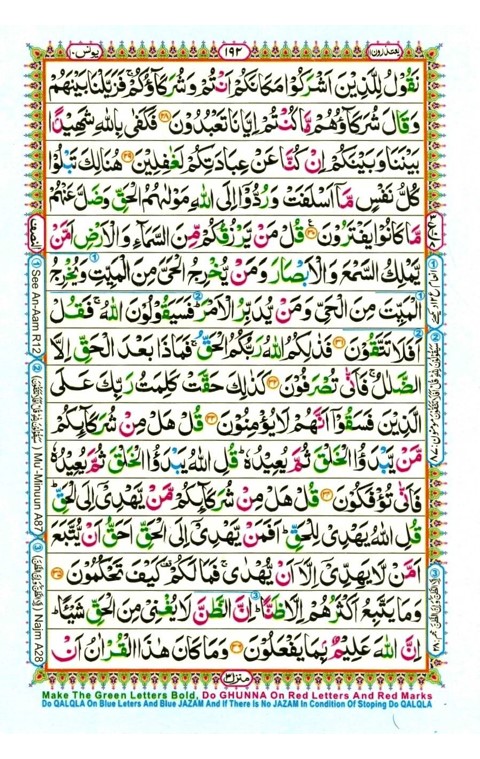 يعتذرون ١١
١٩٢
يونس ١٠
نَقُوْلُ لِلَّذِيْنَ اَشْرَكُوْا مَكَانَكُمْ اَنْتُمْ وَشُرَكَآؤُكُمْ ۚ فَزَيَّلْنَا بَيْنَهُمْ
وَقَالَ شُرَكَآؤُهُمْ مَّا كُنْتُمْ اِيَّانَا تَعْبُدُوْنَ ۝٢٨ فَكَفٰى بِاللّٰهِ شَهِيْدًۢا
بَيْنَنَا وَبَيْنَكُمْ اِنْ كُنَّا عَنْ عِبَادَتِكُمْ لَغٰفِلِيْنَ ۝٢٩ هُنَالِكَ تَبْلُوْا
كُلُّ نَفْسٍ مَّآ اَسْلَفَتْ وَرُدُّوْٓا اِلَى اللّٰهِ مَوْلٰىهُمُ الْحَقِّ وَضَلَّ عَنْهُمْ
مَّا كَانُوْا يَفْتَرُوْنَ ۝٣٠ قُلْ مَنْ يَّرْزُقُكُمْ مِّنَ السَّمَآءِ وَالْاَرْضِ اَمَّنْ
يَّمْلِكُ السَّمْعَ وَالْاَبْصَارَ وَمَنْ يُّخْرِجُ الْحَىَّ مِنَ الْمَيِّتِ وَيُخْرِجُ
الْمَيِّتَ مِنَ الْحَىِّ وَمَنْ يُّدَبِّرُ الْاَمْرَ ؕ فَسَيَقُوْلُوْنَ اللّٰهُ ۚ فَقُلْ
اَفَلَا تَتَّقُوْنَ ۝٣١ فَذٰلِكُمُ اللّٰهُ رَبُّكُمُ الْحَقُّ ۚ فَمَاذَا بَعْدَ الْحَقِّ اِلَّا
الضَّلٰلُ ۖ فَاَنّٰى تُصْرَفُوْنَ ۝٣٢ كَذٰلِكَ حَقَّتْ كَلِمَتُ رَبِّكَ عَلَى
الَّذِيْنَ فَسَقُوْٓا اَنَّهُمْ لَا يُؤْمِنُوْنَ ۝٣٣ قُلْ هَلْ مِنْ شُرَكَآئِكُمْ
مَّنْ يَّبْدَؤُا الْخَلْقَ ثُمَّ يُعِيْدُهٗ ؕ قُلِ اللّٰهُ يَبْدَؤُا الْخَلْقَ ثُمَّ يُعِيْدُهٗ
فَاَنّٰى تُؤْفَكُوْنَ ۝٣٤ قُلْ هَلْ مِنْ شُرَكَآئِكُمْ مَّنْ يَّهْدِىْٓ اِلَى الْحَقِّ ؕ
قُلِ اللّٰهُ يَهْدِىْ لِلْحَقِّ ؕ اَفَمَنْ يَّهْدِىْٓ اِلَى الْحَقِّ اَحَقُّ اَنْ يُّتَّبَعَ
اَمَّنْ لَّا يَهِدِّىْٓ اِلَّآ اَنْ يُّهْدٰى ۚ فَمَا لَكُمْ كَيْفَ تَحْكُمُوْنَ ۝٣٥
وَمَا يَتَّبِعُ اَكْثَرُهُمْ اِلَّا ظَنًّا ؕ اِنَّ الظَّنَّ لَا يُغْنِىْ مِنَ الْحَقِّ شَيْـًٔا ؕ
اِنَّ اللّٰهَ عَلِيْمٌۢ بِمَا يَفْعَلُوْنَ ۝٣٦ وَمَا كَانَ هٰذَا الْقُرْاٰنُ اَنْ
منزل ٣
① See An-Aam R12
② Mu-Minuun A87
③ Najm A28
Make The Green Letters Bold, Do GHUNNA On Red Letters And Red Marks
Do QALQLA On Blue Leters And Blue JAZAM And If There Is No JAZAM In Condition Of Stoping Do QALQLA